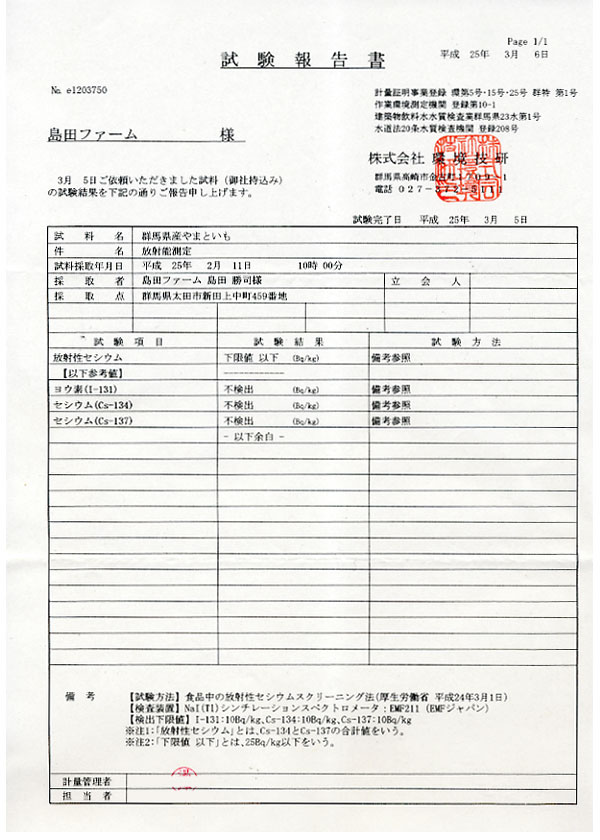 Page 1/1
平成 25年 3月 6日
試験報告書
№ e1203750
計量証明事業登録 環第5号・15号・25号 群特 第1号
作業環境測定機関 登録第10-1
建築物飲料水水質検査業群馬県23水第1号
水道法20条水質検査機関 登録208号
島田ファーム 様
株式会社 環境技研
群馬県高崎市金古町1709-1
電話 027-372-5111
3月 5日ご依頼いただきました試料（御社持込み）
の試験結果を下記の通りご報告申し上げます。
試験完了日 平成 25年 3月 5日
試料名 群馬県産やまといも
件名 放射能測定
試料採取年月日 平成 25年 2月 11日 10時 00分
採取者 島田ファーム 島田 勝司様 立会人
採取点 群馬県太田市新田上中町459番地
試験項目 試験結果 試験方法
放射性セシウム 下限値 以下 (Bq/kg) 備考参照
【以下参考値】 --------------
ヨウ素(I-131) 不検出 (Bq/kg) 備考参照
セシウム(Cs-134) 不検出 (Bq/kg) 備考参照
セシウム(Cs-137) 不検出 (Bq/kg) 備考参照
- 以下余白 -
備考 【試験方法】食品中の放射性セシウムスクリーニング法(厚生労働省 平成24年3月1日)
【検査装置】NaI(Tl)シンチレーションスペクトロメータ：EMF211 (EMFジャパン)
【検出下限値】I-131:10Bq/kg、Cs-134:10Bq/kg、Cs-137:10Bq/kg
※注1：「放射性セシウム」とは、Cs-134とCs-137の合計値をいう。
※注2：「下限値 以下」とは、25Bq/kg以下をいう。
計量管理者
担当者